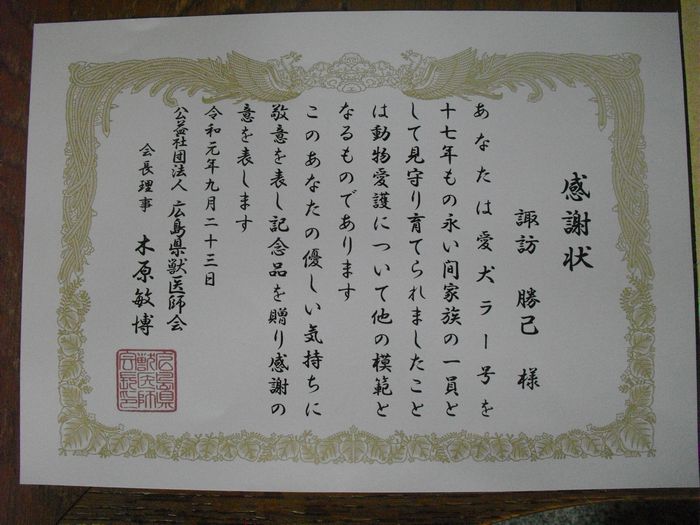 感謝状
諏訪 勝己 様
あなたは愛犬ラー号を
十七年もの永い间家族の一員と
して見守り育てられましたこと
は動物愛護について他の模範と
なるものであります
このあなたの優しい気持ちに
敬意を表し記念品を贈り感謝の
意を表します
令和元年九月二十三日
公益社団法人 広島県獣医師会
会長理事 木原敏博
広島県
獣医師
会長印